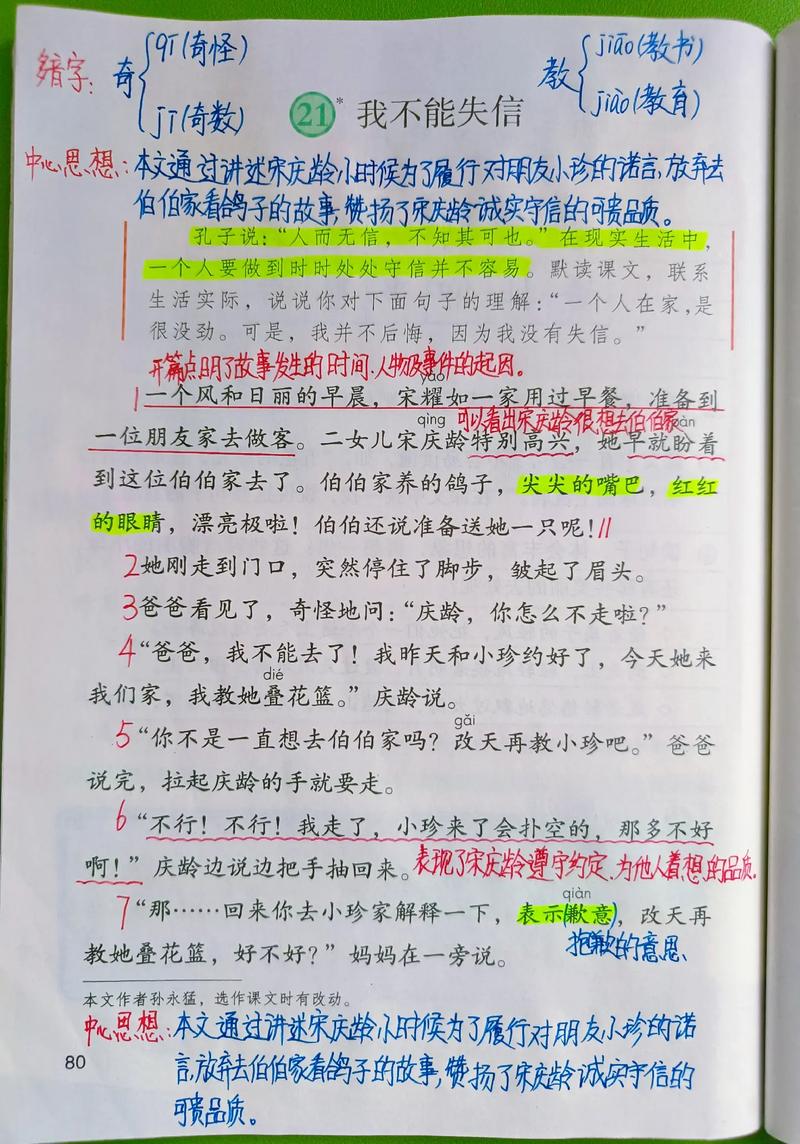 多音字：奇 qí(奇怪) 教 jiāo(教书)
jī(奇数) jiào(教育)
21* 我不能失信
中心思想：本文通过讲述宋庆龄小时候为了履行对朋友小珍的诺言，放弃去
伯伯家看鸽子的故事，赞扬了宋庆龄诚实守信的可贵品质。
孔子说：“人而无信，不知其可也。”在现实生活中，
一个人要做到时时处处守信并不容易。默读课文，联系
生活实际，说说你对下面句子的理解：“一个人在家，是
很没劲。可是，我并不后悔，因为我没有失信。”
开篇点明了故事发生的时间、人物及事件的起因。
yào
1一个风和日丽的早晨，宋耀如一家用过早餐，准备到
qìng 可以看出宋庆龄很想去伯伯家 pàn
一位朋友家去做客。二女儿宋庆龄特别高兴，她早就盼着
到这位伯伯家去了。伯伯家养的鸽子，尖尖的嘴巴，红红
的眼睛，漂亮极啦！伯伯还说准备送她一只呢！||
2她刚走到门口，突然停住了脚步，皱起了眉头。
3爸爸看见了，奇怪地问：“庆龄，你怎么不走啦？”
4“爸爸，我不能去了！我昨天和小珍约好了，今天她来
dié
我们家，我教她叠花篮。”庆龄说。
gǎi
5“你不是一直想去伯伯家吗？改天再教小珍吧。”爸爸
说完，拉起庆龄的手就要走。
6“不行！不行！我走了，小珍来了会扑空的，那多不好
啊！”庆龄边说边把手抽回来。表现了宋庆龄遵守约定、为他人着想的品质。
qiàn
7“那……回来你去小珍家解释一下，表示(歉意)，改天再
教她叠花篮，好不好？”妈妈在一旁说。 抱歉的意思、
本文作者孙永猛，选作课文时有改动。
中心思想：本文通过讲述宋庆龄小时候为了履行对朋友小珍的诺
80 言，放弃去伯伯家看鸽子的故事，赞扬了宋庆龄诚实守信的
可贵品质。